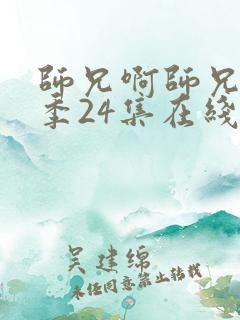 師兄啊師兄
季24集在綫
吴建綿
未任同意禁止轉載